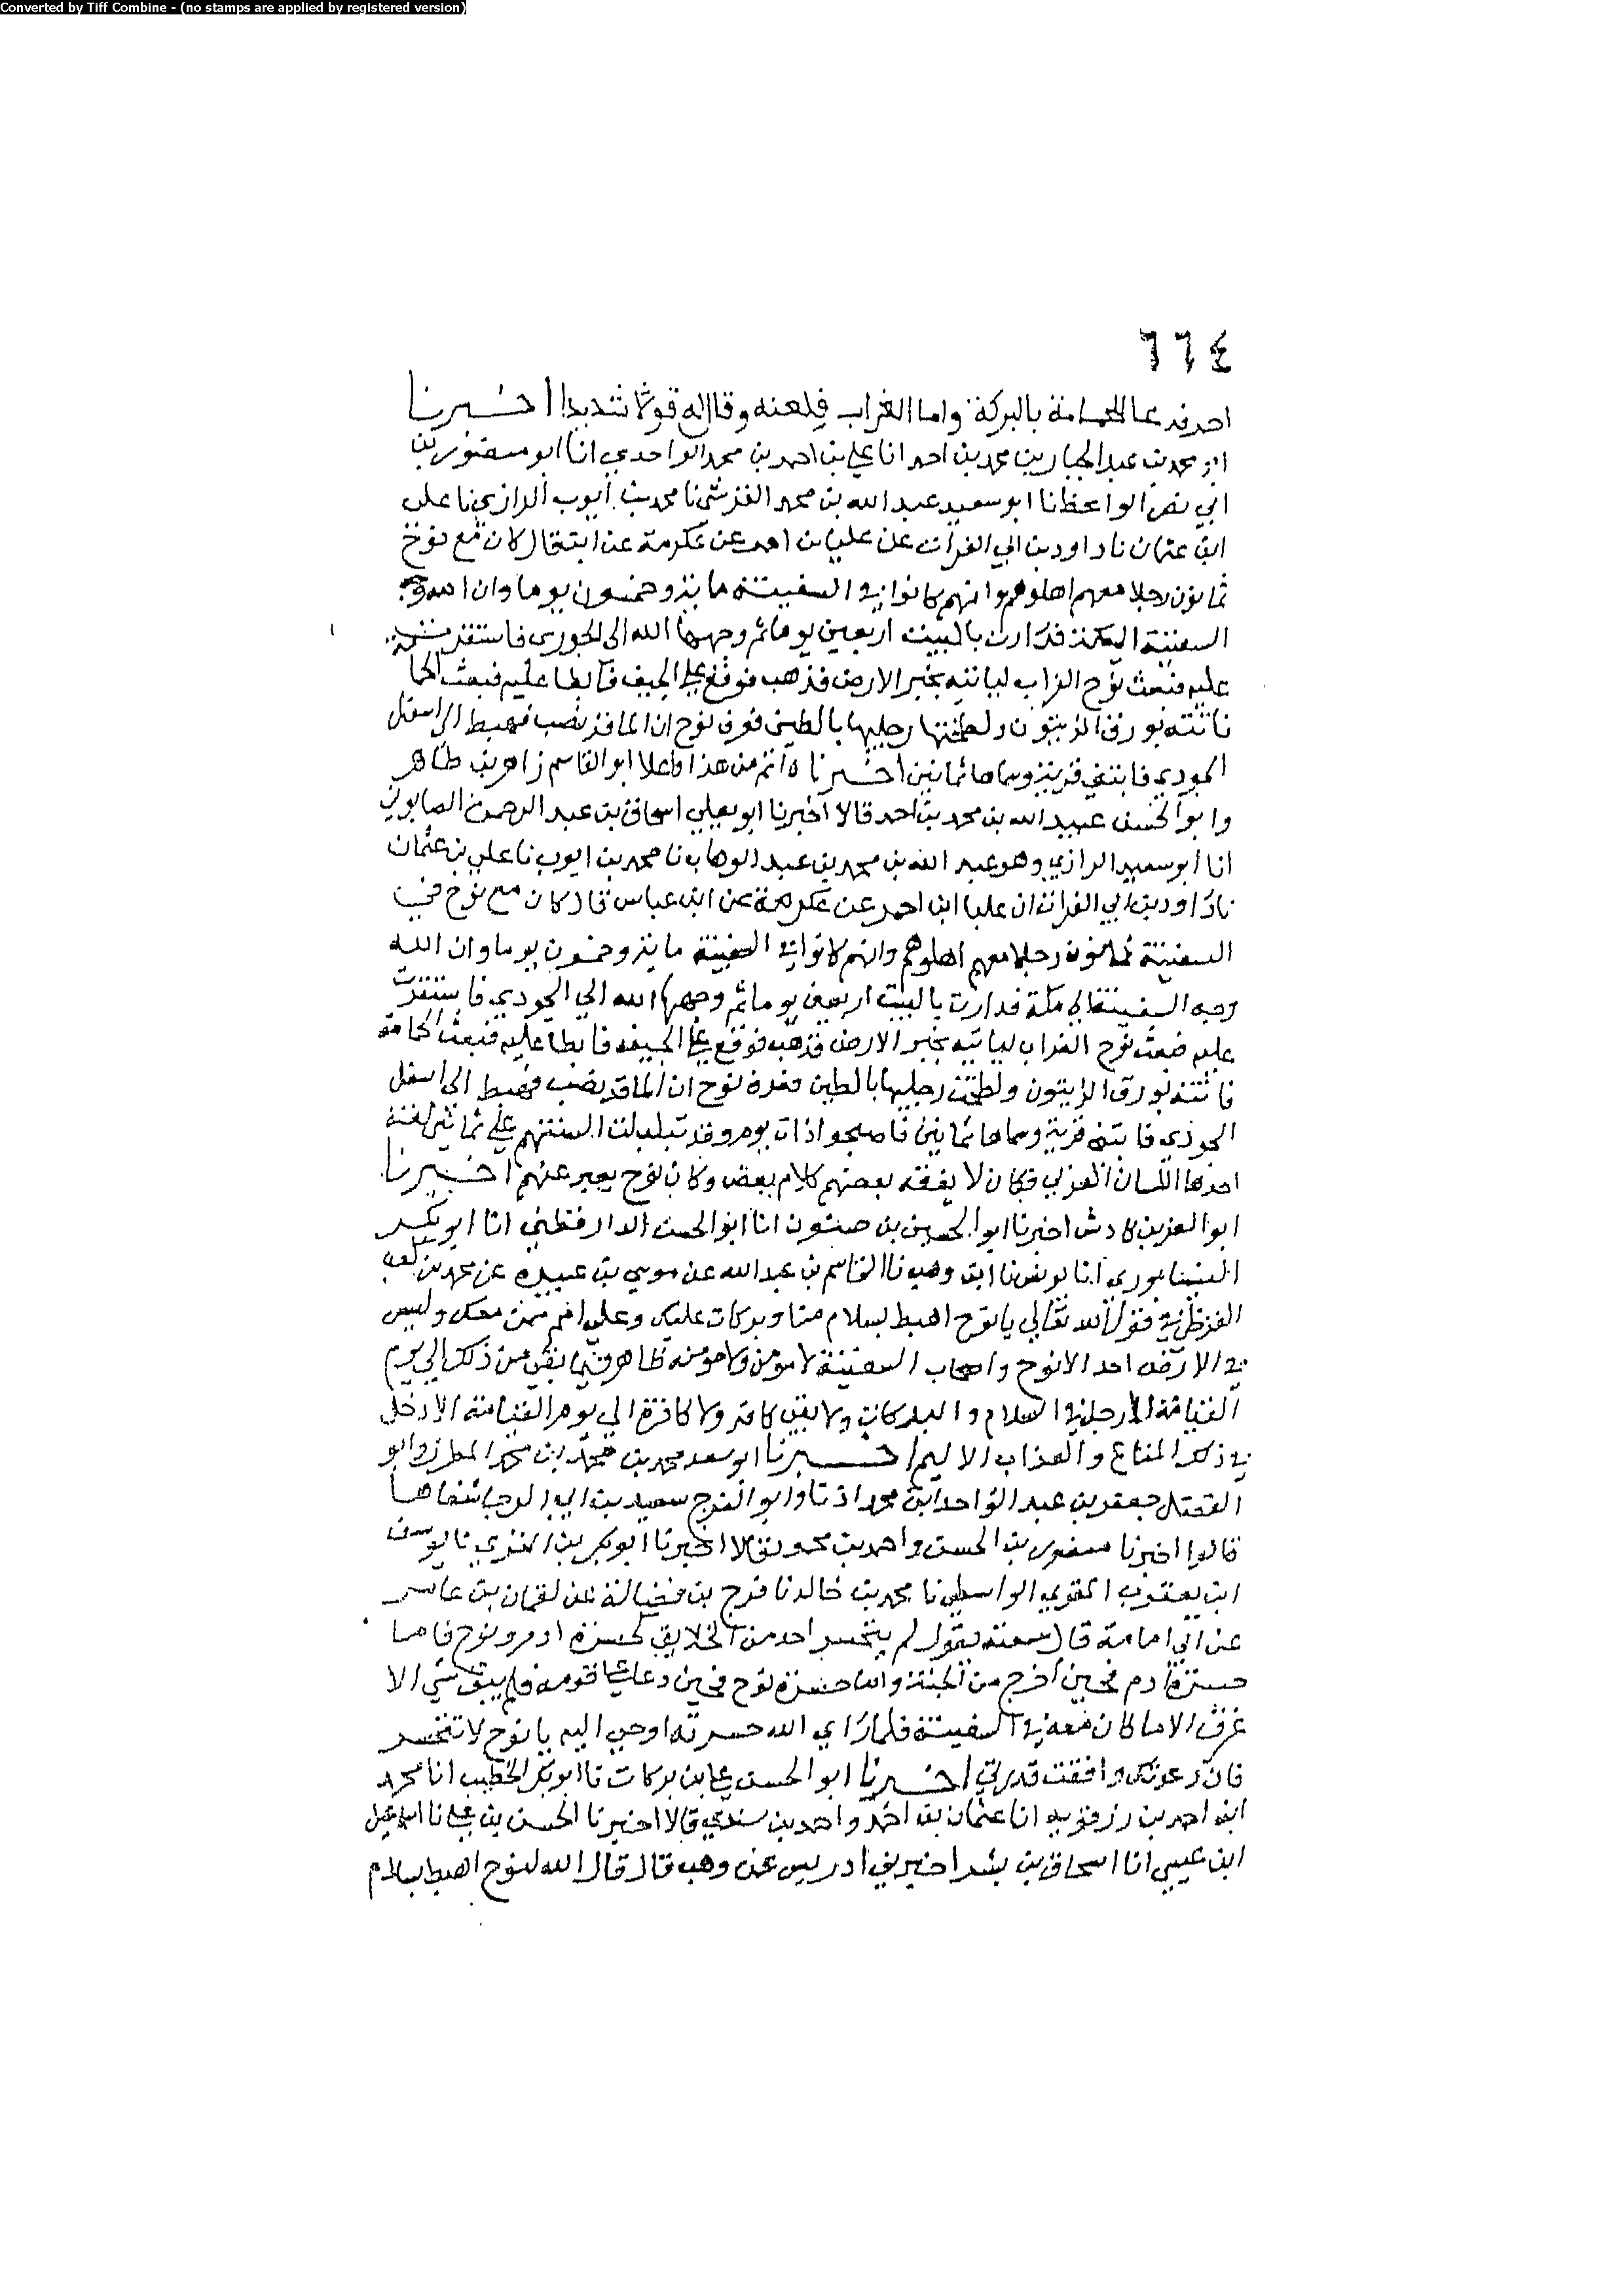 Converted by Tiff Combine - (no stamps are applied by registered version)
٦٦٤
احد فدعا للحمامة بالبركة واما الغراب فلعنه وقال له قولا شديدا اخبرنا
محمد بن عبد الجبار بن محمد بن احمد انا علي بن احمد بن محمد الواحدي انا ابو منصور بن
ابي نصر الواعظ نا ابو سعيد عبد الله بن محمد القرشي نا محمد بن ايوب الرازي نا علي
ابن عثمان نا داود بن ابي الفرات عن عليا بن احمد عن عكرمة عن ابن قال كان مع نوح
ثمانون رجلا معهم اهلوهم وانهم كانوا في السفينة ماية وخمسون يوما وان الله وجه
السفينة الي مكة فدارت بالبيت اربعين يوما ثم وجهها الله الى الجودي فاستقرت
عليه فبعث نوح الغراب لياتيه بخبر الارض فذهب فوقع علي الجيف فابطا عليه فبعث الحما
فاتته بورق الزيتون ولطختها رجليها بالطين فعرف نوح ان الما قد نضب فهبط الى اسفل
الجودي فابتني قرية وسماها ثمانين اخبرنا ه اتم من هذا واعلا ابو القاسم زاهر بن طاهر
وابو الحسن عبيد الله بن محمد بن احمد قالا اخبرنا ابو يعلي اسحاق بن عبد الرحمن الصابوني
انا ابو سعيد الرازي وهو عبد الله بن محمد بن عبد الوهاب نا محمد بن ايوب نا علي بن عثمان
نا داود بن ابي الفرات ان عليا ابن احمد عن عكرمة عن ابن عباس قال كان مع نوح في
السفينة ثمانون رجلا معهم اهلوهم وانهم كانوا في السفينة ماية وخمسون يوما وان الله
وجه السفينة الي مكة فدارت بالبيت اربعين يوما ثم وجهها الله الي الجودي فاستقرت
عليه فبعث نوح الغراب لياتيه بخبر الارض فذهب فوقع علي الجيفه فابطا عليه فبعث الحمامة
فاتته بورق الزيتون ولطخت رجليها بالطين فعرف نوح ان الما قد نضب فهبط الى اسفل
الجودي فابتني قرية وسماها ثمانين فاصبحوا ذات يوم وقد تبلبلت السنتهم علي ثمانين لغة
احدها اللسان العربي فكان لا يفقه بعضهم كلام بعض وكان نوح يعبر عنهم اخبرنا
ابو العز بن كادش اخبرنا ابو الحسين بن حسنون انا ابو الحسن الدارقطني انا ابو بكر
النيسابوري انا يونس نا ابن وهب نا القاسم بن عبد الله عن موسي بن عبيده عن محمد بن كعب
القرظي في قول الله تعالي يا نوح اهبط بسلام منا وبركات عليك وعلي امم ممن معك وليس
في الارض احد الا نوح واصحاب السفينة لا مومن ولا مومنه ظاهر فيما بقي من ذلك الي يوم
القيامة الا دخل في السلام والبركات ولا بقي كافر ولا كافرة الي يوم القيامة الا دخل
في ذلك المتاع والعذاب الاليم اخبرنا ابو سعد محمد بن محمد بن محمد المطرز وابو
الفضل جعفر بن عبد الواحد ابن محمد اذنا وابو الفرج سعيد بن ابي الرجا شفاها
قالوا اخبرنا منصور بن الحسن واحمد بن محمود قالا اخبرنا ابو بكر بن المقري نا يوسف
ابن يعقوب المقري الواسطي نا محمد بن خالد نا فرج بن فضالة عن لقمان بن عامر
عن ابي امامة قال سمعته يقول لم يتحسر احد من الخلايق كحسرة ادم ونوح فاما
حسرة ادم فحين اخرج من الجنة واما حسرة نوح فحين دعا علي قومه فلم يبق شي الا
غرق الا ما كان معه في السفينة فلما راي الله حسرته اوحي اليه يا نوح لا تتحسر
فان دعوتك وافقت قدرتي اخبرنا ابو الحسن علي بن بركات نا ابو بكر الخطيب انا محمد
ابن احمد بن رزقويه انا عثمان بن احمد واحمد بن سندي قالا اخبرنا الحسن بن علي نا اسماعيل
ابن عيسي انا اسحاق بن بشر اخبرني ادريس عن وهب قال قال الله لنوح اهبط بسلام